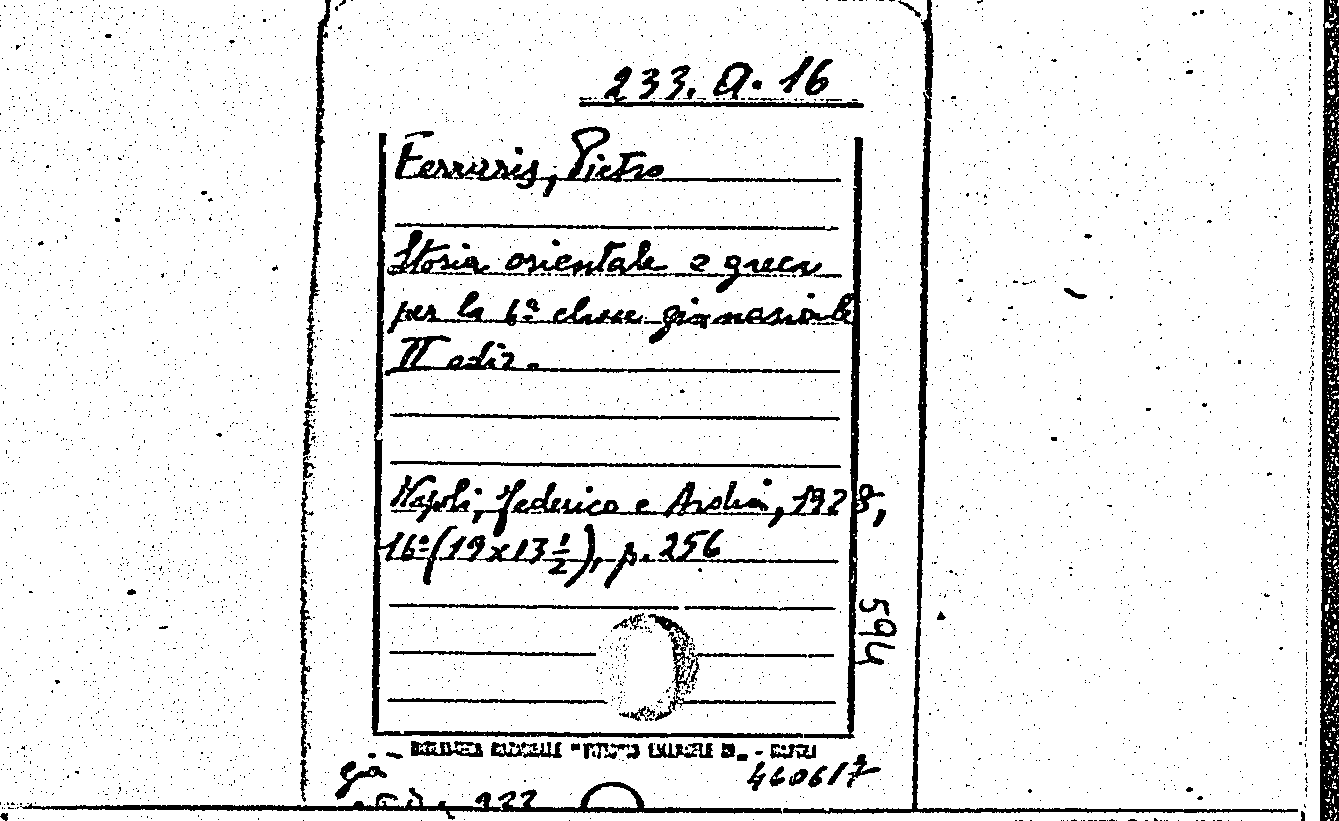 233. A. 16
Ferraris, Pietro
Storia orientale e greca
per la 6ª classe ginnasiale
II ediz.
Napoli, Federico e Ardia, 1928,
16º (19 x 13 1/2), p. 256
594
BIBLIOTECA NAZIONALE "VITTORIO EMANUELE III" - NAPOLI
già
460617